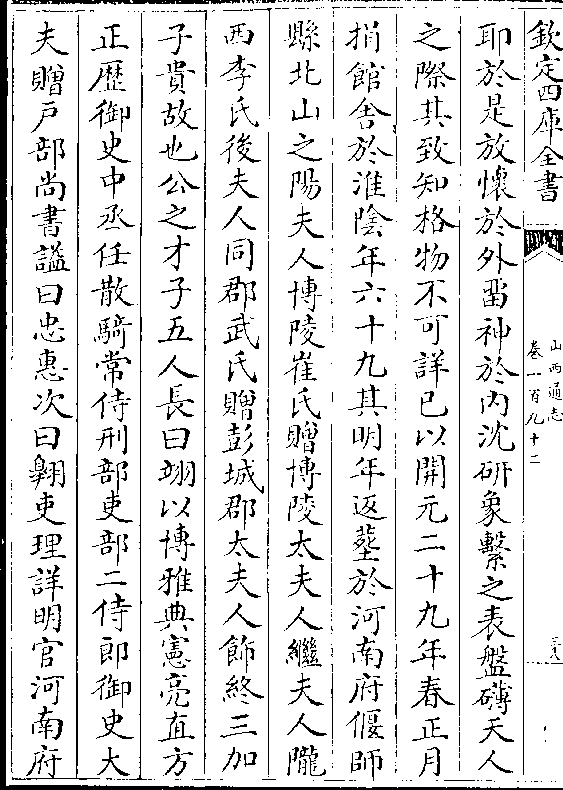 欽定四庫全書
山西通志
卷一百九十二
三六
耶於是放懷於外畱神於内沈研象繫之表盤礴天人
之際其致知格物不可詳已以開元二十九年春正月
捐館舍於淮陰年六十九其明年返塟於河南府偃師
縣北山之陽夫人博陵崔氏贈博陵太夫人繼夫人隴
西李氏後夫人同郡武氏贈彭城郡太夫人飾終三加
子貴故也公之才子五人長曰翊以博雅典憲亮直方
正歴御史中丞任散騎常侍刑部吏部二侍郎御史大
夫贈戸部尚書諡曰忠惠次曰翺吏理詳明官河南府